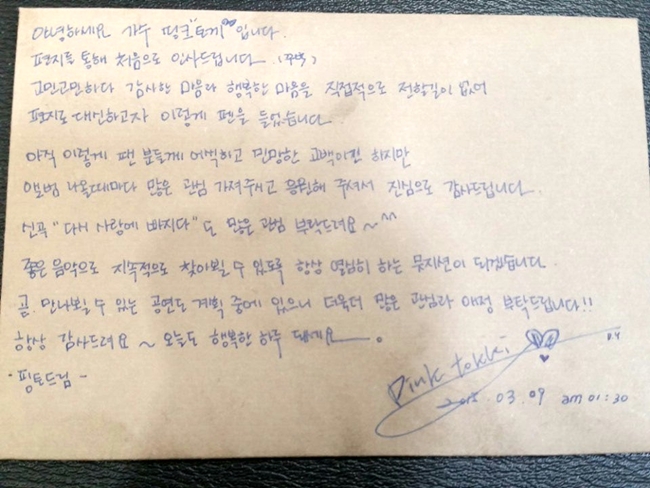 안녕하세요 가수 핑크"토끼"♡입니다.
편지를 통해 처음으로 인사드립니다. (꾸벅)
고민고민하다 감사한 마음과 행복한 마음을 직접적으로 전할길이 없어
편지로 대신하고자 이렇게 펜을 들었습니다.
아직 이렇게 팬 분들게 어색하고 민망한 고백이긴 하지만
앨범 나올때마다 많은 관심 가져주시고 응원해 주셔서 진심으로 감사드립니다.
신곡 "다시 사랑에 빠지다" 도 많은 관심 부탁드려요~^^
좋은 음악으로 지속적으로 찾아뵐 수 있도록 항상 열심히 하는 뮤지션이 되겠습니다.
곧. 만나뵐 수 있는 공연도 계획 중에 있으니 더욱더 많은 관심과 애정 부탁드립니다!!
항상 감사드려요 ~ 오늘도 행복한 하루 되세요.
Pink tokki
-핑토드림-
2015.03.09 am 01:30